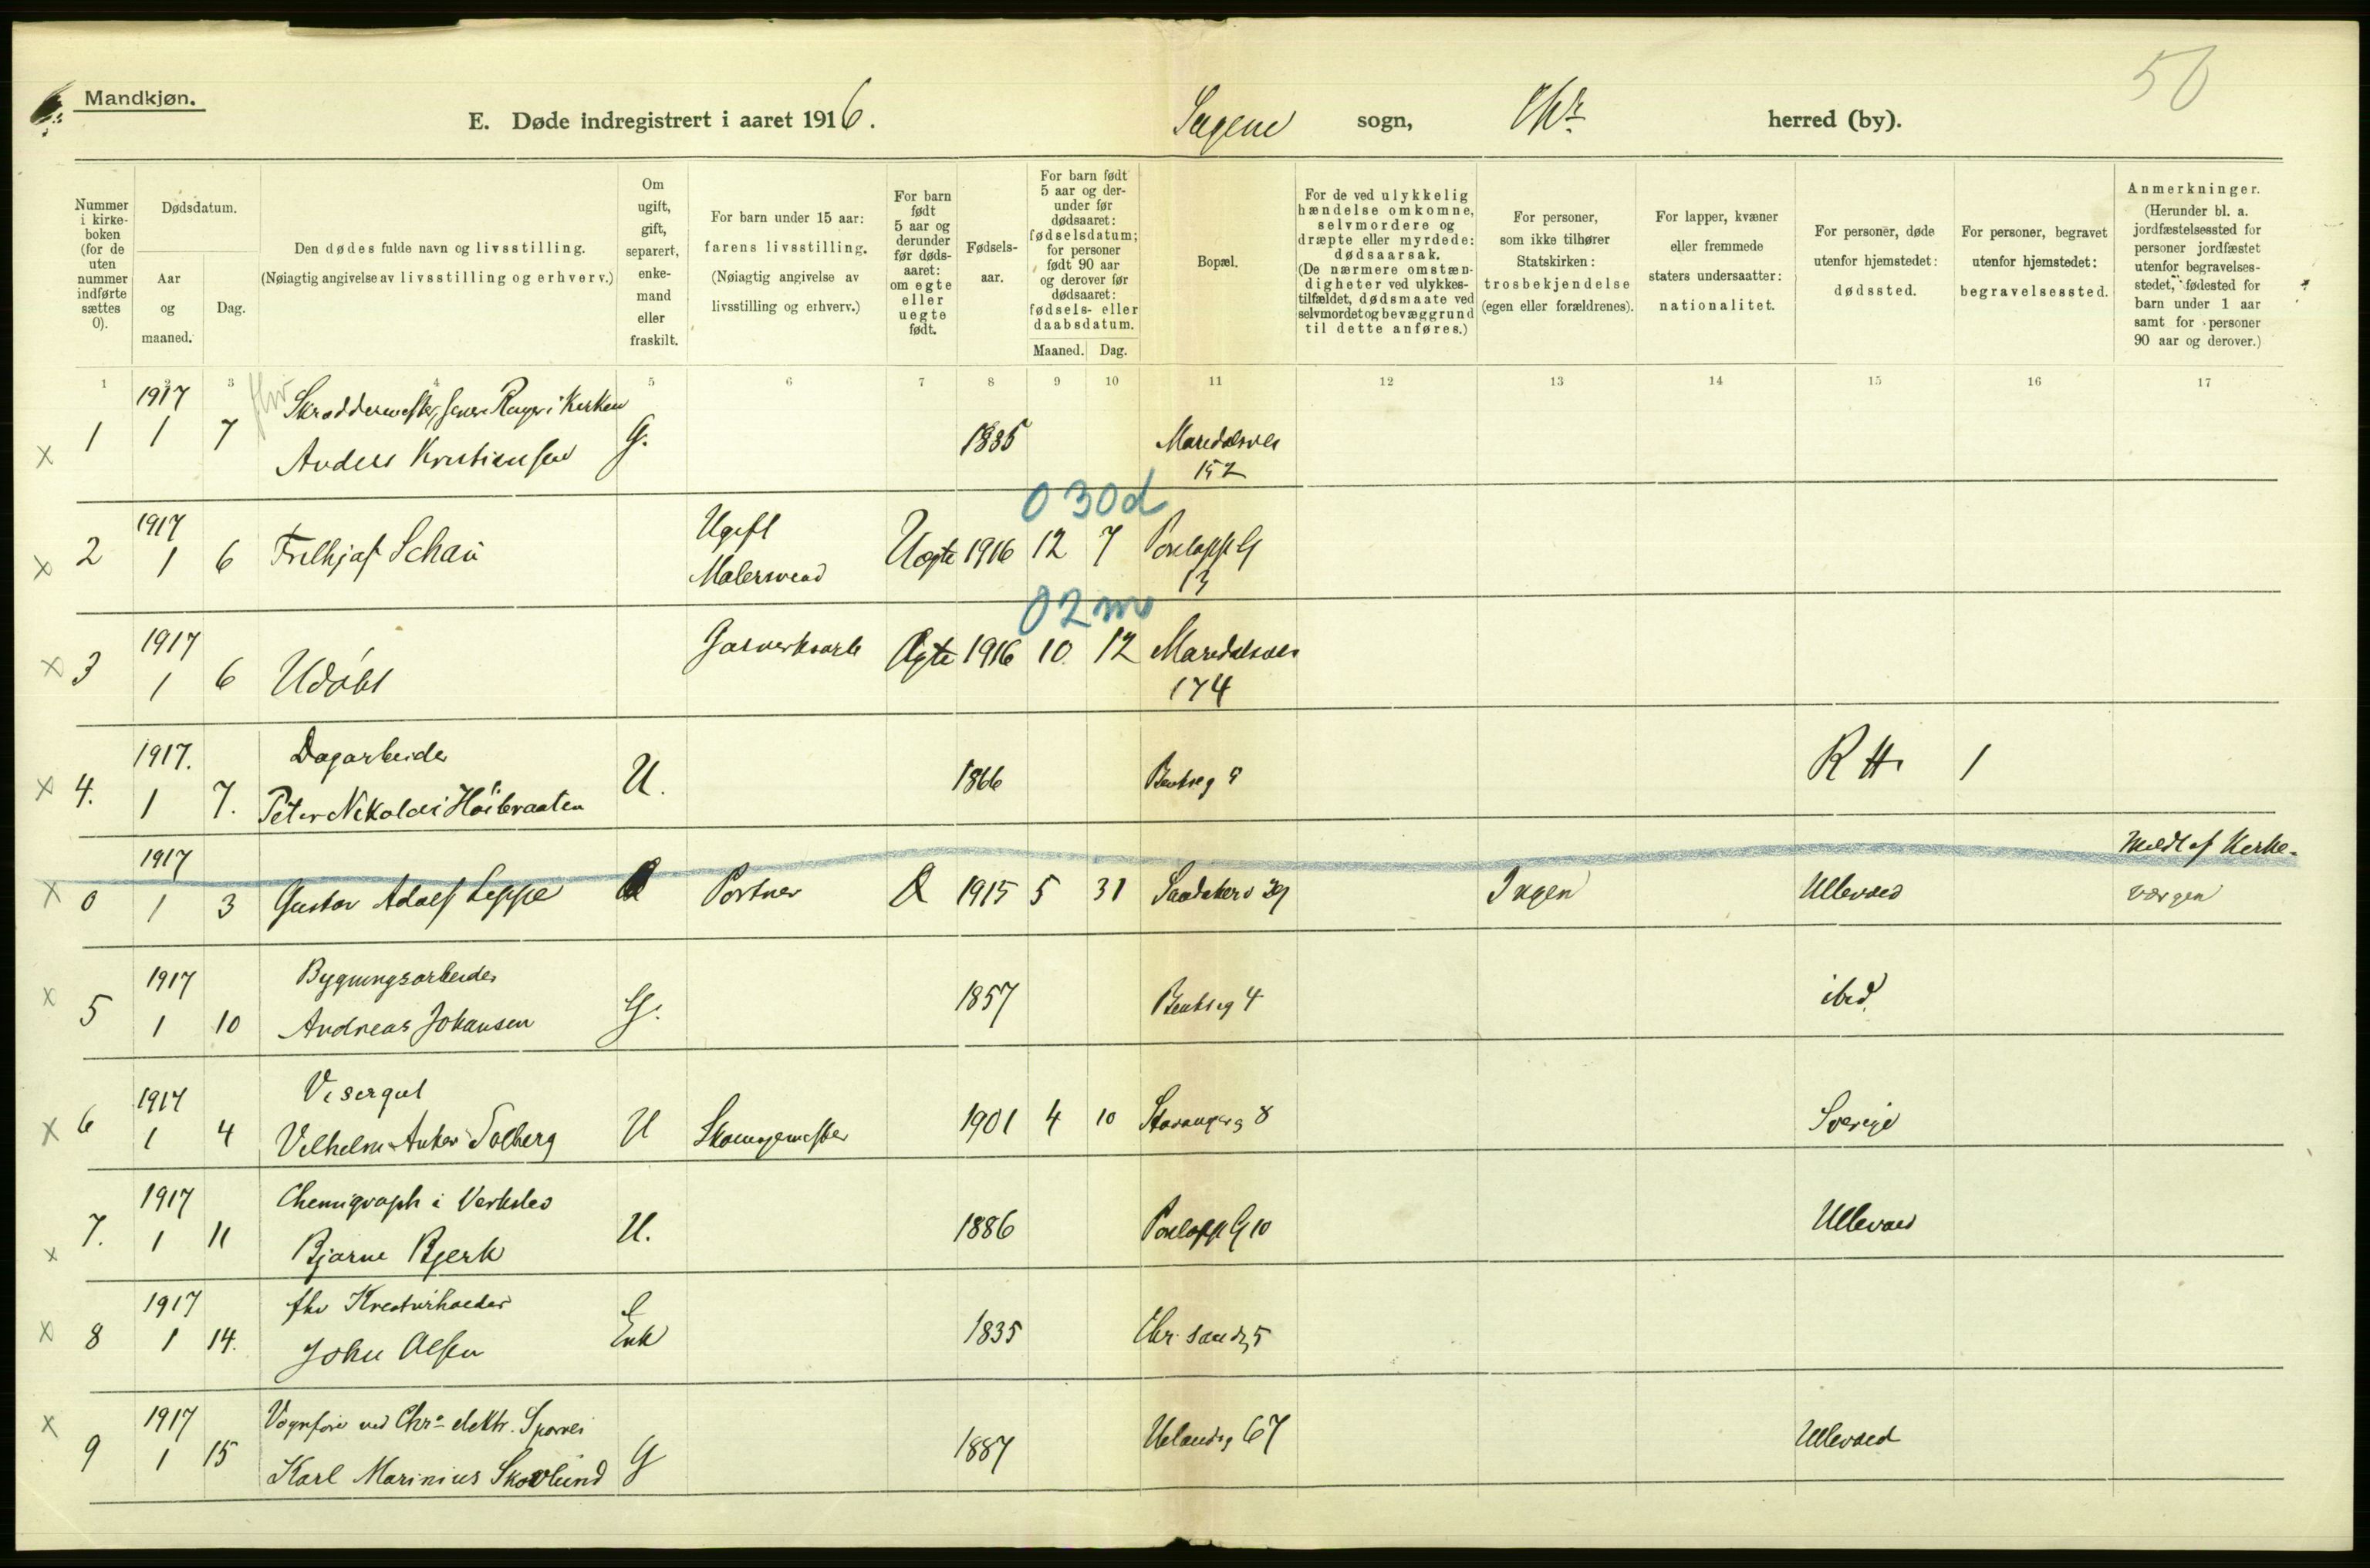 Mandkjøn.
50
E. Døde indregistrert i aaret 1916.
Sagene sogn, Chra herred (by).
Nummer i kirkeboken (for de uten nummer indførte sættes 0).
Dødsdatum.
Aar og maaned.
Dag.
Den dødes fulde navn og livsstilling.
(Nøiagtig angivelse av livsstilling og erhverv.)
Om ugift, gift, separert, enkemand eller fraskilt.
For barn under 15 aar: farens livsstilling.
(Nøiagtig angivelse av livsstilling og erhverv.)
For barn født 5 aar og derunder før dødsaaret: om egte eller uegte født.
Fødselsaar.
For barn født 5 aar og derunder før dødsaaret: fødselsdatum; for personer født 90 aar og derover før dødsaaret: fødsels- eller daabsdatum.
Maaned. Dag.
Bopæl.
For de ved ulykkelig hændelse omkomne, selvmordere og dræpte eller myrdede: dødsaarsak.
(De nærmere omstændigheter ved ulykkestilfældet, dødsmaate ved selvmordet og bevæggrund til dette anføres.)
For personer, som ikke tilhører Statskirken: trosbekjendelse (egen eller forældrenes).
For lapper, kvæner eller fremmede staters undersaatter: nationalitet.
For personer, døde utenfor hjemstedet: dødssted.
For personer, begravet utenfor hjemstedet: begravelsessted.
Anmerkninger.
(Herunder bl. a. jordfæstelsessted for personer jordfæstet utenfor begravelsesstedet, fødested for barn under 1 aar samt for personer 90 aar og derover.)
1 2 3 4 5 6 7 8 9 10 11 12 13 14 15 16 17
1917 fhv Skræddermester, senere i Kirken
x 1 1 7 Anders Kristiansen G. 1835 Maridalsvei
152
0 30d
1917 Ugift
x 2 1 6 Frithjof Schau Malersvend Uegte 1916 12 7 G
13
0 2 m
1917 Garverkarle Ægte 1916 10. 12 Maridalsvei
x 3 1 6 Udøbt 174
1917. Dagarbeider
x 4. 1 7. Peter Nikolai Høibraaten U. 1866 Bentseg 9 R H. 1
1917 Meldt af Kirke-
x 0 1 3 Gustav Adolf Leppe Portner 1915 5 31 Ingen Ullevaal værgen
1917 Bygningsarbeider
x 5 1 10 Andreas Johansen G. 1857 Bentseg 4 ibid.
1917 Visergut
x 6 1 4 Vilhelm Anker Solberg U Skomagermester 1901 4 10 Stavangerg 8 Sverige
1917 Chemigraph i Verksted
x 7. 1 11 Bjarne Bjerk U. 1886 G 10 Ullevaal
1917 fhv Kreaturhandler
x 8 1 14. John Olsen Enk 1835 Chr.sandg 5
1917 Vognfører ved Chra elektr. Sporvei
x 9 1 15 Karl Marinius Skovlund G 1887 Uelandsg 67 Ullevaal